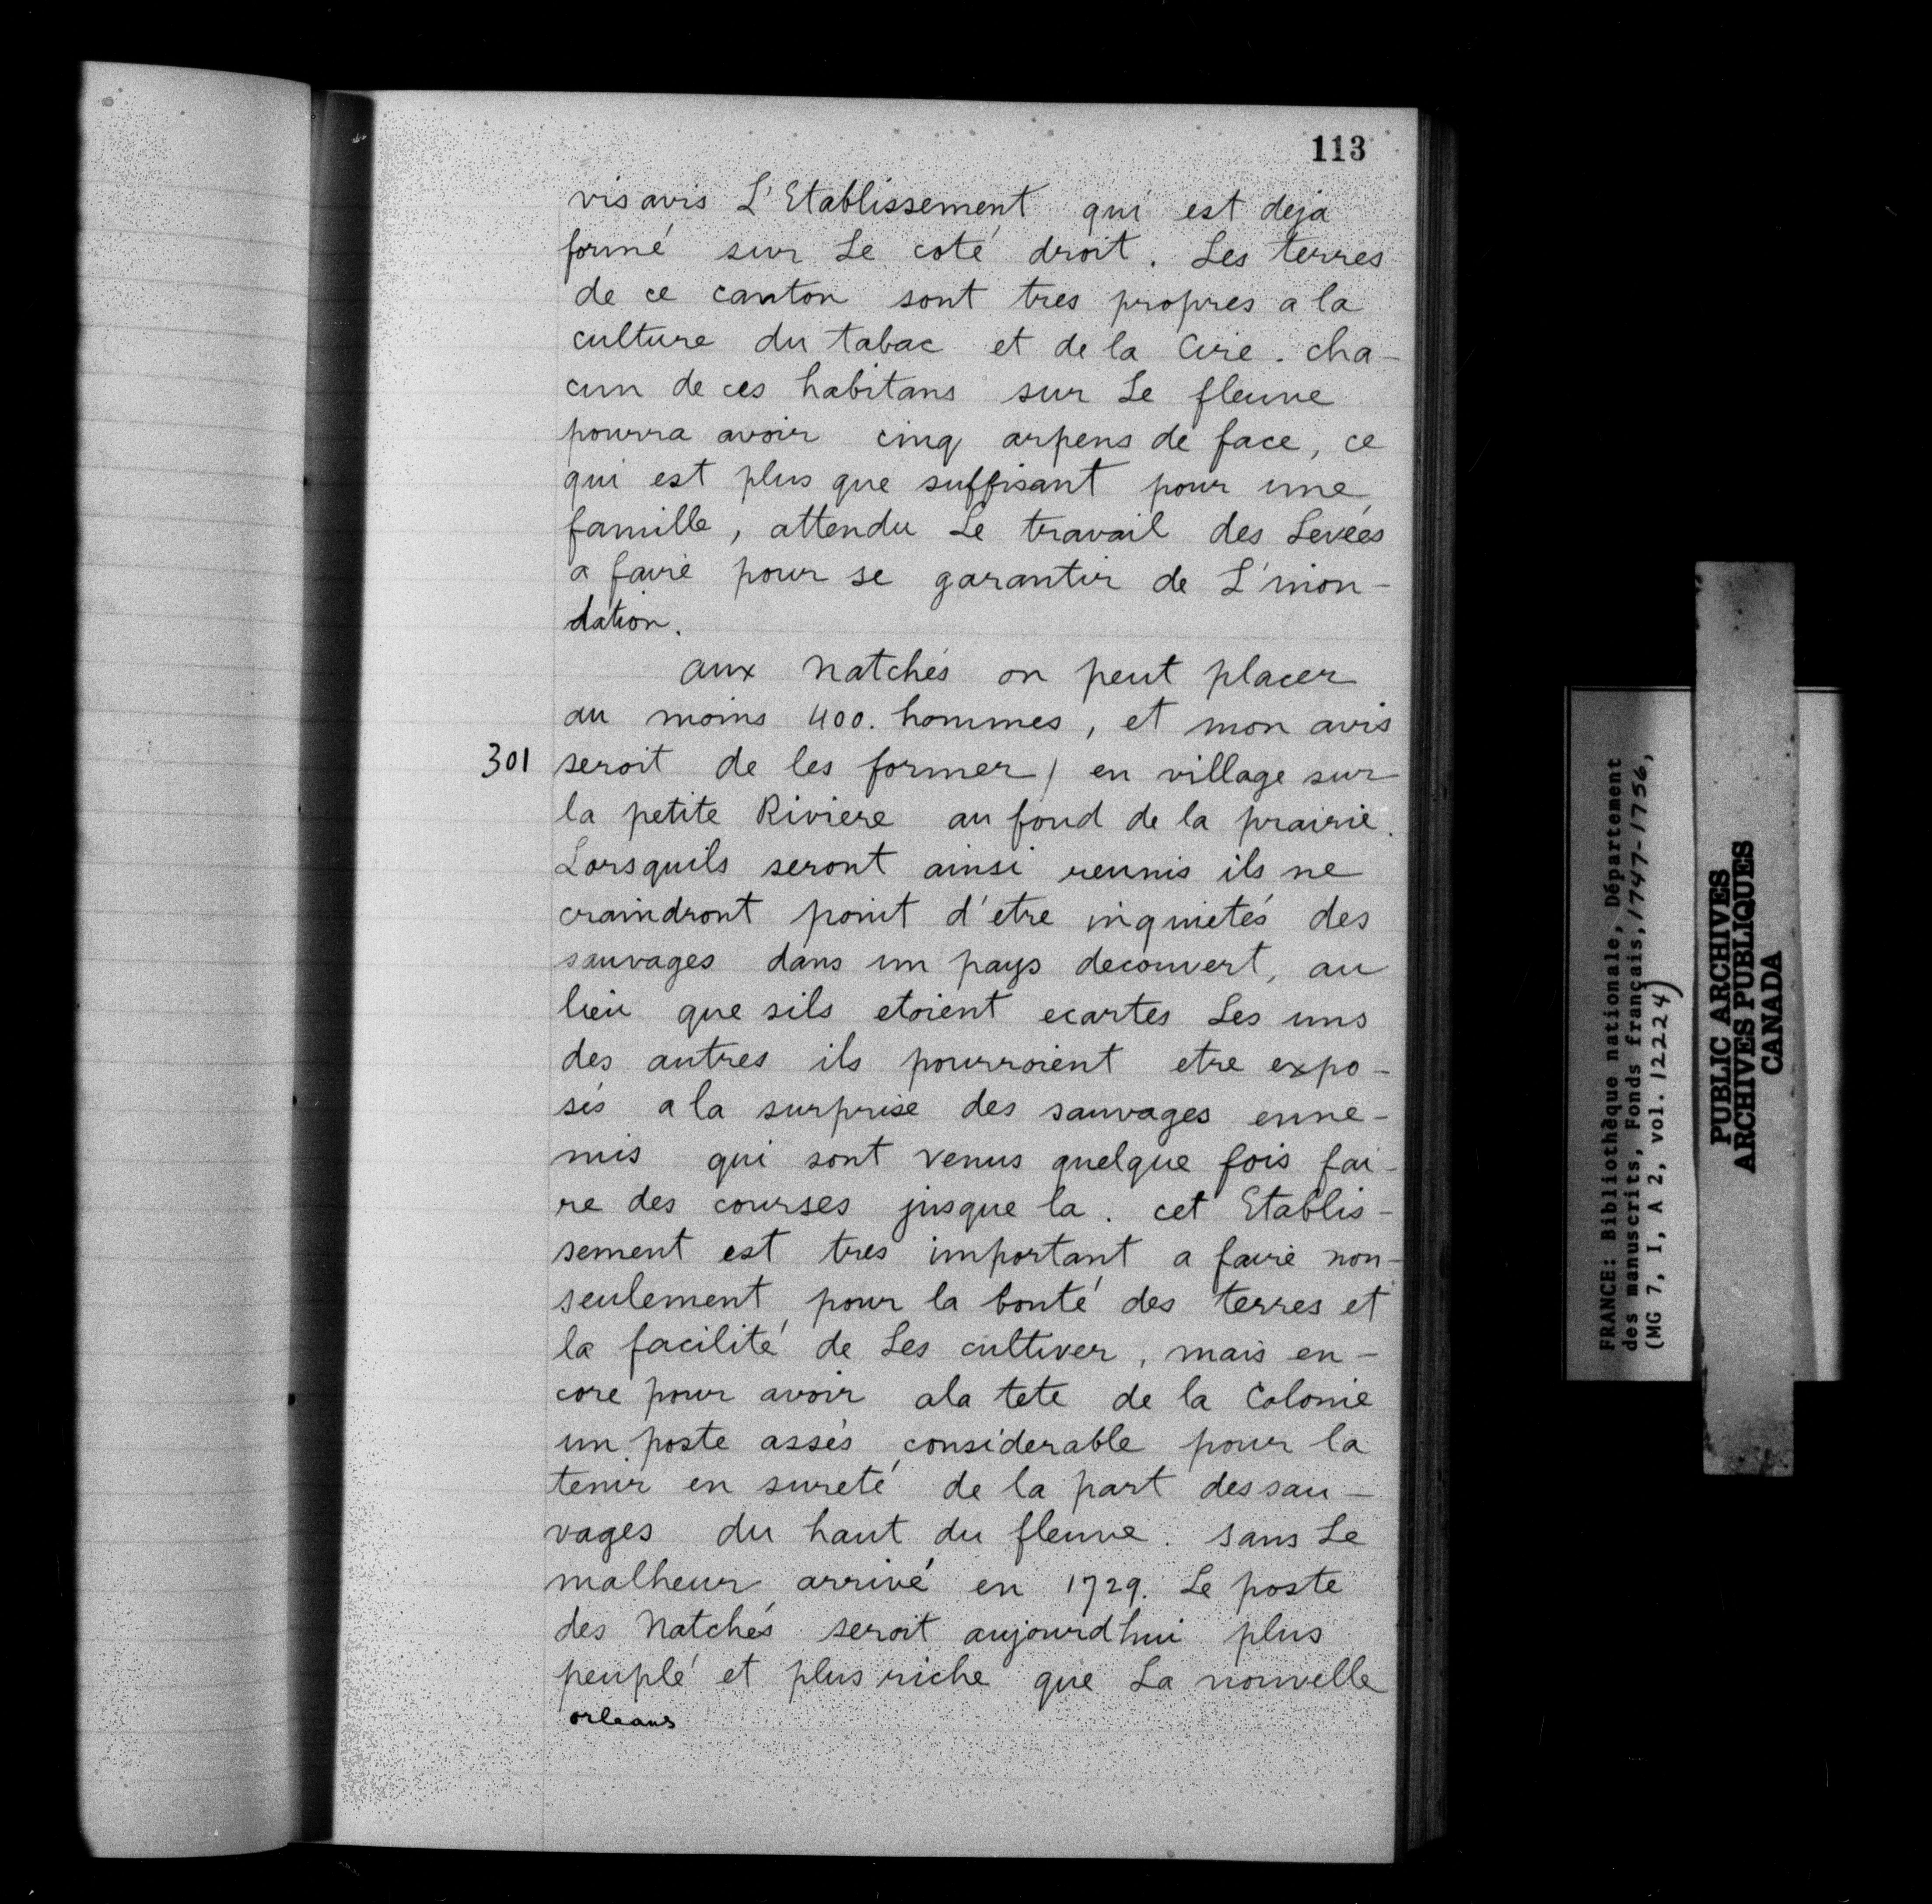 113
visavis L'Etablissement qui est deja
formé sur Le coté droit. Les terres
de ce canton sont tres propres a la
culture du tabac et de la Cire. cha-
cun de ces habitans sur Le fleuve
pourra avoir cinq arpens de face, ce
qui est plus que suffisant pour une
famille, attendu Le travail des Levées
a faire pour se garantir de L'inon-
dation.
aux Natchés on peut placer
au moins 400. hommes, et mon avis
301 seroit de les former / en village sur
la petite Riviere au fond de la prairie.
Lorsquils seront ainsi reunis ils ne
craindront point d'etre inquietés des
sauvages dans un pays decouvert, au
lieu que sils etoient ecartes Les uns
des autres ils pourroient etre expo-
sés a la surprise des sauvages enne-
mis qui sont venus quelque fois fai-
re des courses jusque la. cet Etablis-
sement est tres important a faire non-
seulement pour la bonté des terres et
la facilité de Les cultiver, mais en-
core pour avoir ala tete de la Colonie
un poste assés considerable pour la
tenir en sureté de la part des sau-
vages du haut du fleuve. Sans Le
malheur arrivé en 1729. Le poste
des Natchés seroit aujourdhui plus
peuplé et plus riche que La nouvelle
orleans
FRANCE: Bibliothèque nationale, Département
des manuscrits, Fonds français, 1747-1756,
(MG 7, I, A 2, vol. 12224)
PUBLIC ARCHIVES
ARCHIVES PUBLIQUES
CANADA